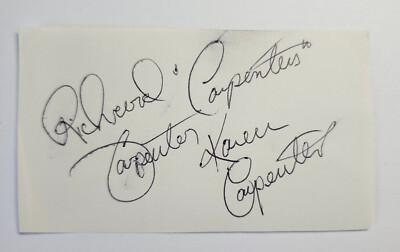 Richard "Carpenters"
Carpenter Karen
Carpenter